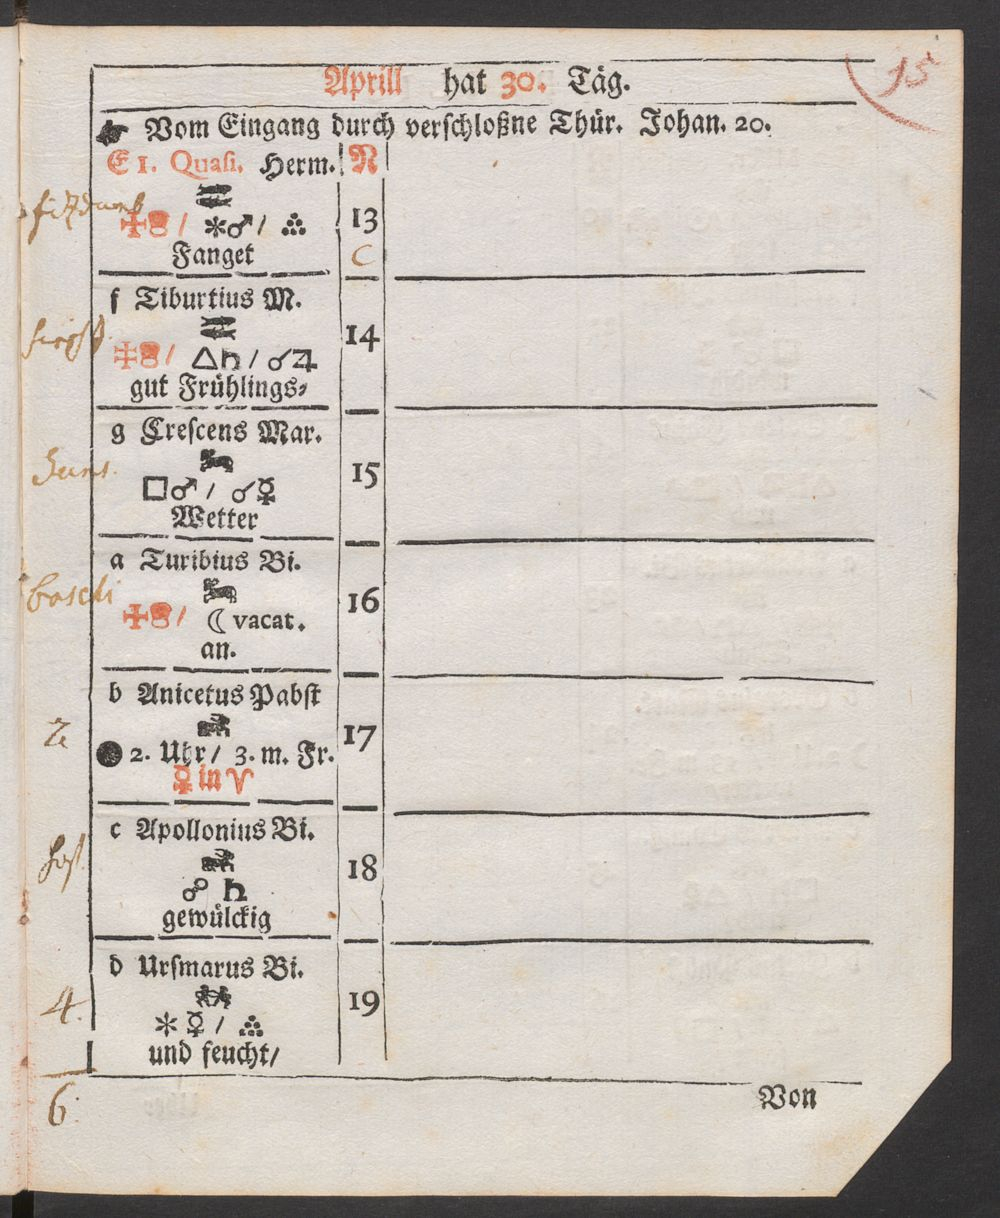 15
Aprill hat 30. Täg.
☛ Vom Eingang durch verschloßne Thür. Johan. 20.
E 1. Quasi. Herm. N
/ ⚹♂ / 13
Fanget C
f Tiburtius M.
/ △♄ / ☌♃ 14
gut Frühlings⸗
g Crescens Mar.
□♂ / ☌☿ 15
Wetter
a Turibius Bi.
/ ☾ vacat. 16
an.
b Anicetus Pabst
● 2. Uhr / 3. m. Fr. 17
☿ in ♈
c Apollonius Bi.
☍ ♄ 18
gewülckig
d Ursmarus Bi.
⚹ ☿ / 19
und feucht/
4.
6.
Von